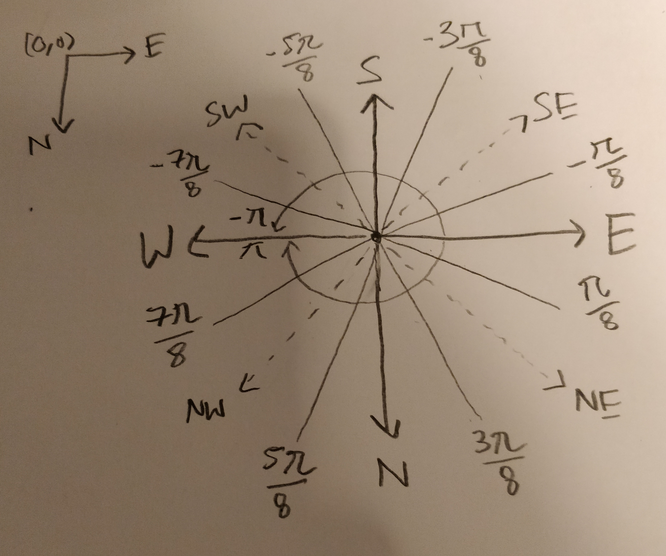 (0,0)
E
N
-5π/8
S
-3π/8
SW
SE
-7π/8
-π/8
-π
W
E
π
7π/8
π/8
NW
NE
5π/8
N
3π/8